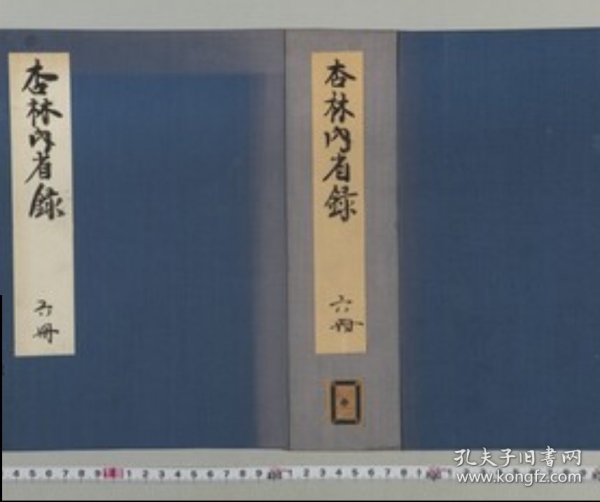 杏林内省録
六冊
杏林内省録
六冊
孔夫子旧书网
www.kongfz.com